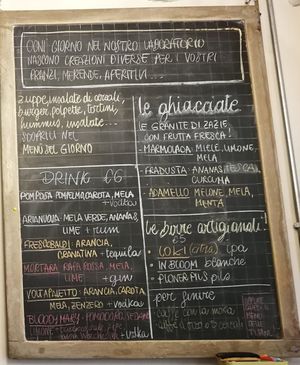 OGNI GIORNO NEL NOSTRO LABORATORIO
NASCONO CREAZIONI DIVERSE PER I VOSTRI
PRANZI, MERENDE, APERITIVI...
zuppe, insalate di cereali,
burger, polpette, tortini,
hummus, insalate...
SCOPRILI NEL
MENÙ DEL GIORNO
DRINK €6
POMPOSTA POMPELMO, CAROTA, MELA
+ vodka
ARIANUOVA MELA VERDE, ANANAS,
LIME + rum
FRESCOBALDI: ARANCIA,
GRANATINA + tequila
MORTARA RAPA ROSSA, MELA,
LIME + gin
VOLTAPALETTO: ARANCIA, CAROTA,
MELA, ZENZERO + vodka
BLOODY MARY: POMODORO, SEDANO
LIMONE +
+ vodka
le ghiacciate
LE GRANITE DI ZAZIE,
CON FRUTTA FRESCA!
- MARMOLADA: MIELE, LIMONE,
MELA
- FRADUSTA: ANANAS, PESCA,
CURCUMA
- ADAMELLO MELONE, MELA,
MENTA
le birre artigianali!
€5
ipa
- IN BLOOM blanche
pils
per finire
- caffè con la moka